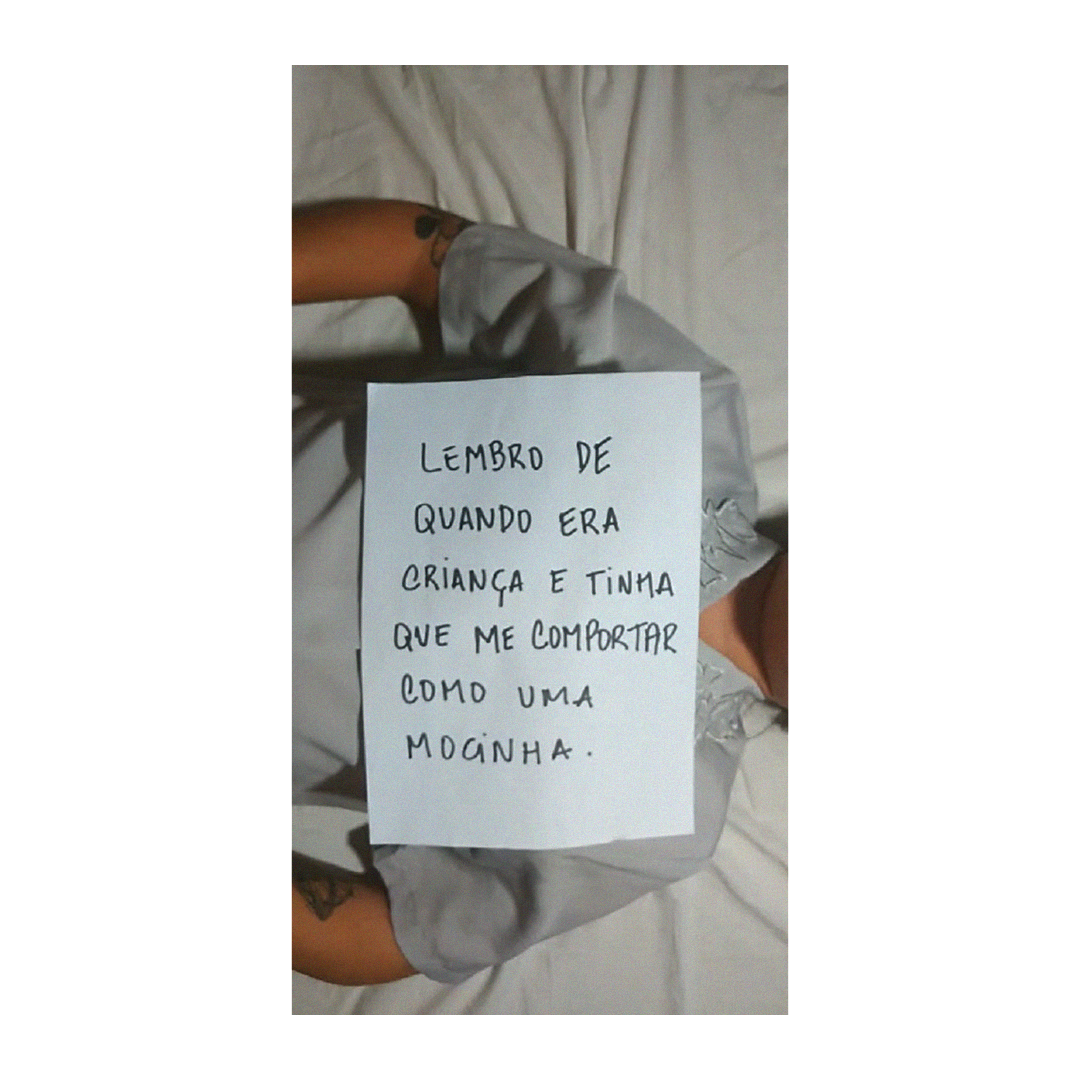 LEMBRO DE
QUANDO ERA
CRIANÇA E TINHA
QUE ME COMPORTAR
COMO UMA
MOCINHA.